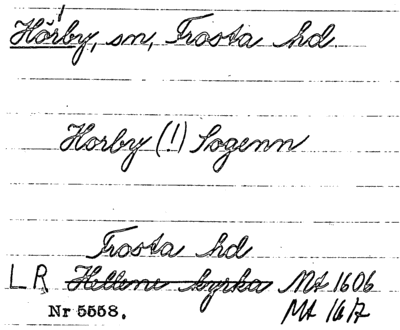 Hörby, sn, Frosta hd
Horby (!) Sogenn
Frosta hd
LR Hellene kyrka Mt 1606
Nr 5558. Mt